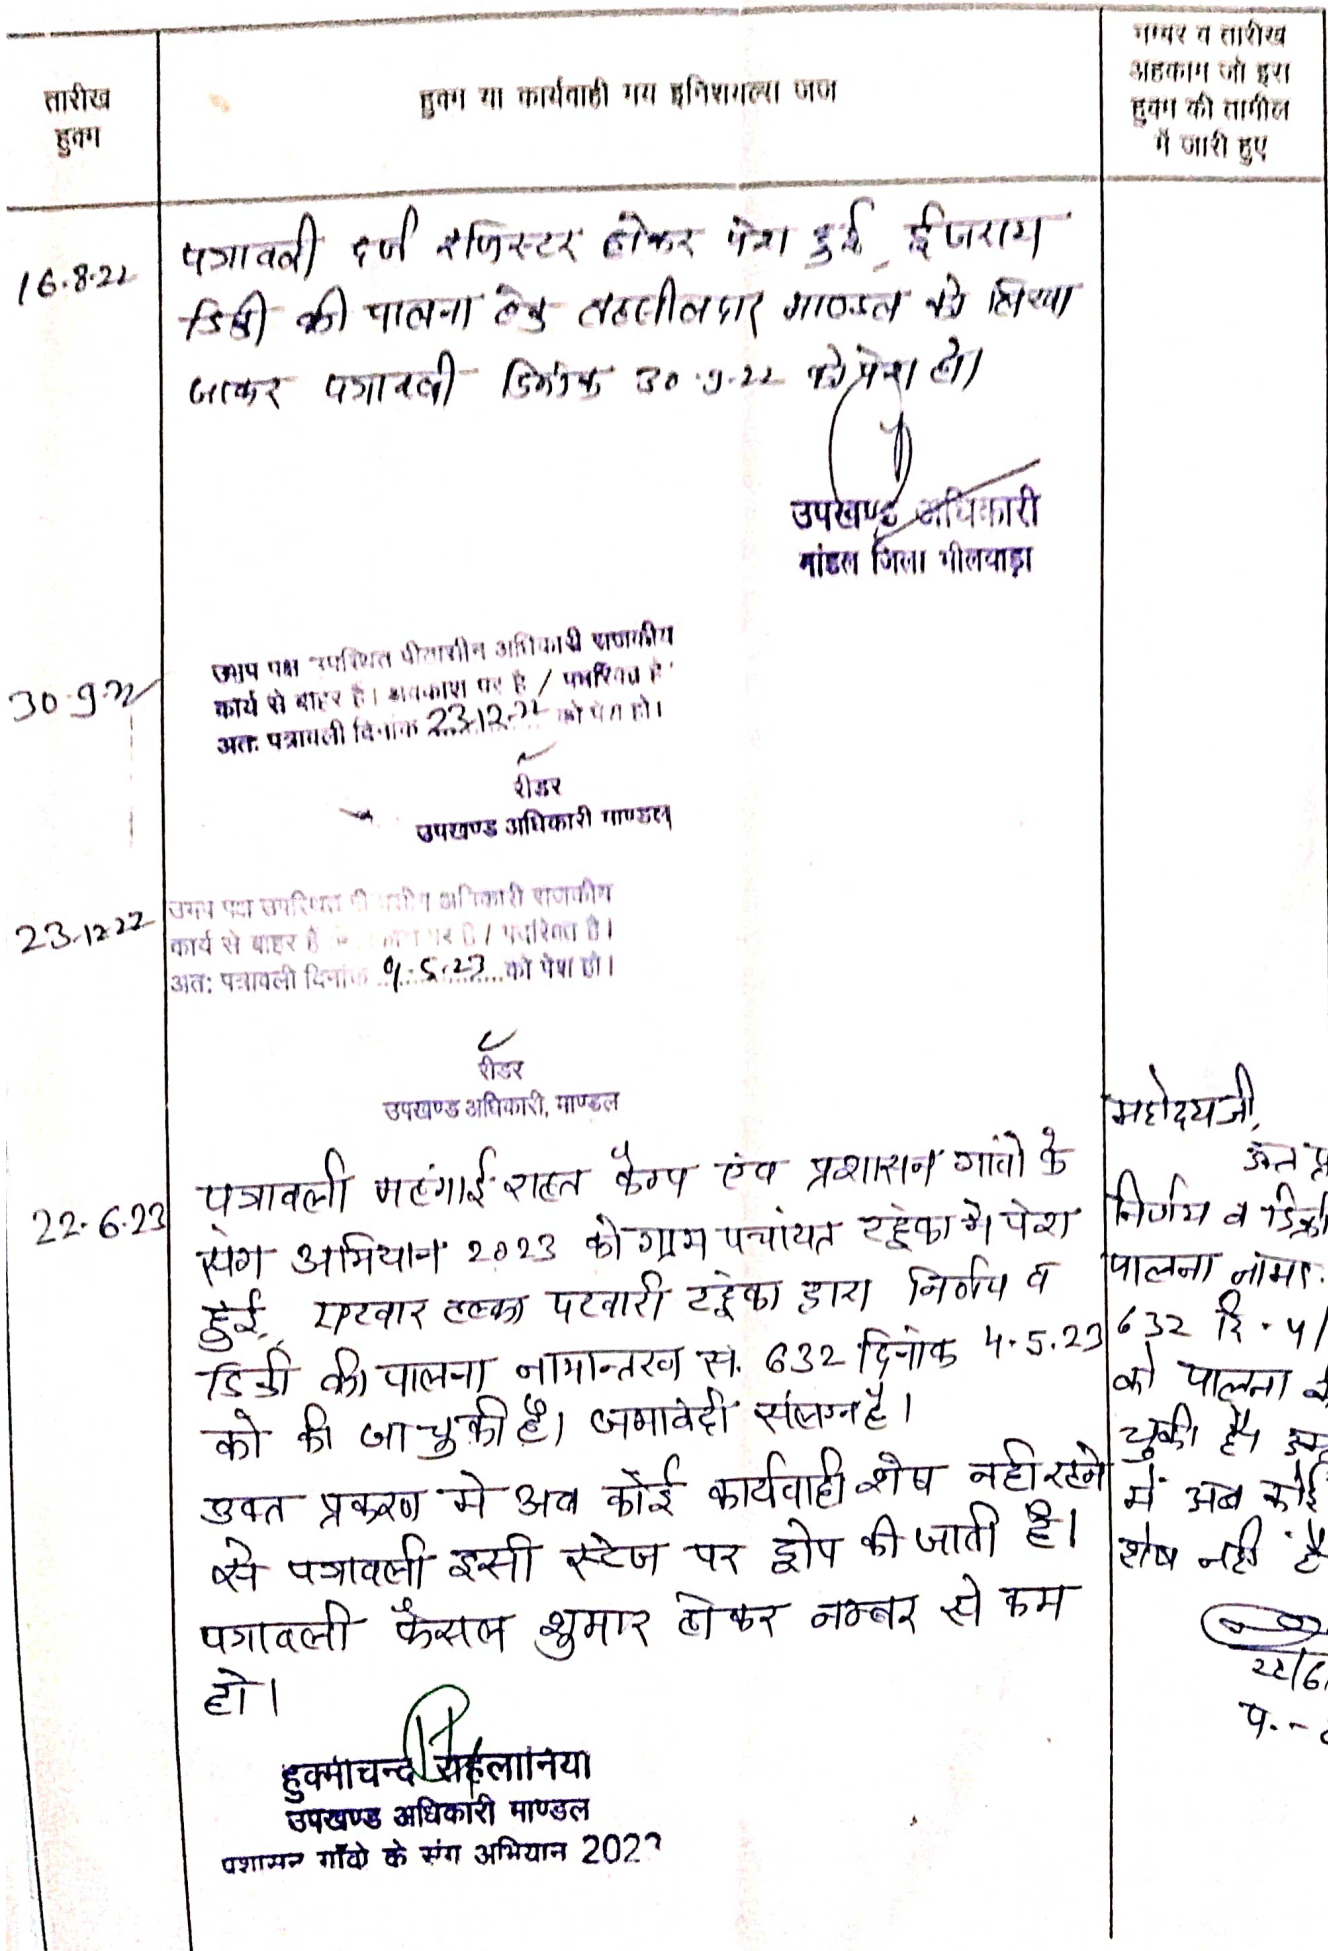 तारीख
हुक्म
हुक्म या कार्यवाही मय इनिशियल्स जज
नम्बर व तारीख
अहकाम जो इस
हुक्म की तामील
में जारी हुए
16.8.22
पत्रावली दर्ज रजिस्टर होकर पेश हुई, ईजराय
डिक्री की पालना हेतु तहसीलदार माण्डल को लिखा
जाकर पत्रावली दिनांक 30.9.22 को पेश हो।
उपखण्ड अधिकारी
मांडल जिला भीलवाड़ा
30.9.22
उभय पक्ष उपस्थित पीठासीन अधिकारी राजकीय
कार्य से बाहर है। अवकाश पर है / पदरिक्त है
अतः पत्रावली दिनांक 23.12.22 को पेश हो।
रीडर
उपखण्ड अधिकारी माण्डल
23.12.22
उभय पक्ष उपस्थित अधिकारी राजकीय
कार्य से बाहर है / पदरिक्त है।
अतः पत्रावली दिनांक 9.5.23 को पेश हो।
रीडर
उपखण्ड अधिकारी, माण्डल
22.6.23
पत्रावली महंगाई राहत कैम्प एंव प्रशासन गांवो के
संग अभियान 2023 को ग्राम पचांयत में पेश
हुई, पटवार हल्का पटवारी द्वारा निर्णय व
डिक्री की पालना नामान्तरण सं. 632 दिनांक 4.5.23
को की जा चुकी है। जमाबंदी संलग्न है।
उक्त प्रकरण मे अब कोई कार्यवाही शेष नही रहने
से पत्रावली इसी स्टेज पर ड्रोप की जाती है।
पत्रावली फैसल शुमार होकर नम्बर से कम
हो।
हुक्मीचन्द रोहलानिया
उपखण्ड अधिकारी माण्डल
प्रशासन गाँवो के संग अभियान 2023
महोदयजी,
निर्णय व डिक्री
पालना नामा.
632
को पालना
चुकी है।
में अब कोई
शेष नही है
22/6